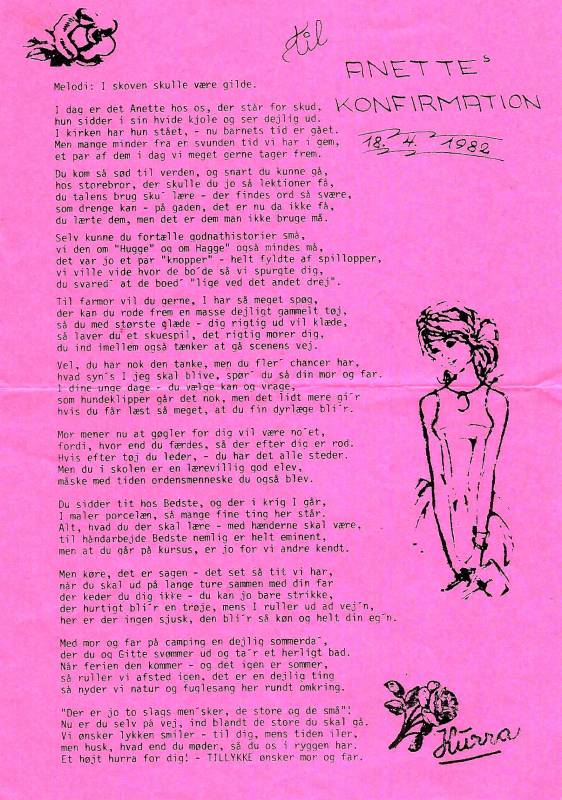 til
ANETTE s
KONFIRMATION
18. 4. 1982
Melodi: I skoven skulle være gilde.
I dag er det Anette hos os, der står for skud,
hun sidder i sin hvide kjole og ser dejlig ud.
I kirken har hun stået, - nu barnets tid er gået.
Men mange minder fra er svunden tid vi har i gem,
et par af dem i dag vi meget gerne tager frem.
Du kom så sød til verden, og snart du kunne gå,
hos storebror, der skulle du jo så lektioner få,
du talens brug sku´ lære - der findes ord så svære,
som drenge kan - på gaden, det er nu da ikke få,
du lærte dem, men det er dem man ikke bruge må.
Selv kunne du fortælle godnathistorier små,
vi den om "Hugge" og om Hagge" også mindes må,
det var jo et par "knopper" - helt fyldte af spillopper,
vi ville vide hvor de bo´de så vi spurgte dig,
du svared´ at de boed´ "lige ved det andet drej".
Til farmor vil du gerne, I har så meget spøg,
der kan du rode frem en masse dejligt gammelt tøj,
så du med største glæde - dig rigtig ud vil klæde,
så laver du et skuespil, det rigtig morer dig,
du ind imellem også tænker at gå scenens vej.
Vel, du har nok den tanke, men du fler´ chancer har,
hvad syn´s I jeg skal blive, spør´ du så din mor og far.
I dine unge dage - du vælge kan og vrage,
som hundeklipper går det nok, men det lidt mere gi´r
hvis du får læst så meget, at du fin dyrlæge bli´r.
Mor mener nu at gøgler for dig vil være no´et,
fordi, hvor end du færdes, så der efter dig er rod.
Hvis efter tøj du leder, - du har det alle steder.
Men du i skolen er en lærevillig god elev,
måske med tiden ordensmenneske du også blev.
Du sidder tit hos Bedste, og der i krig I går,
I maler porcelæn, så mange fine ting her står.
Alt, hvad du der skal lære - med hænderne skal være,
til håndarbejde Bedste nemlig er helt eminent,
men at du går på kursus, er jo for vi andre kendt.
Men køre, det er sagen - det set så tit vi har,
når du skal ud på lange ture sammen med din far
der keder du dig ikke - du kan jo bare strikke,
der hurtigt bli´r en trøje, mens I ruller ud ad vej´n,
her er der ingen sjusk, den bli´r så køn og helt din eg´n.
Med mor og far på camping en dejlig sommerda´,
der du og Gitte svømmer ud og ta´r et herligt bad.
Når ferien den kommer - og det igen er sommer,
så ruller vi afsted igen, det er en dejlig ting
så nyder vi natur og fuglesang her rundt omkring.
"Der er jo to slags men´sker, de store og de små"!
Nu er du selv på vej, ind blandt de store du skal gå.
Vi ønsker lykken smiler - til dig, mens tiden iler,
men husk, hvad end du møder, så du os i ryggen har.
Et højt hurra for dig! - TILLYKKE ønsker mor og far.
Hurra